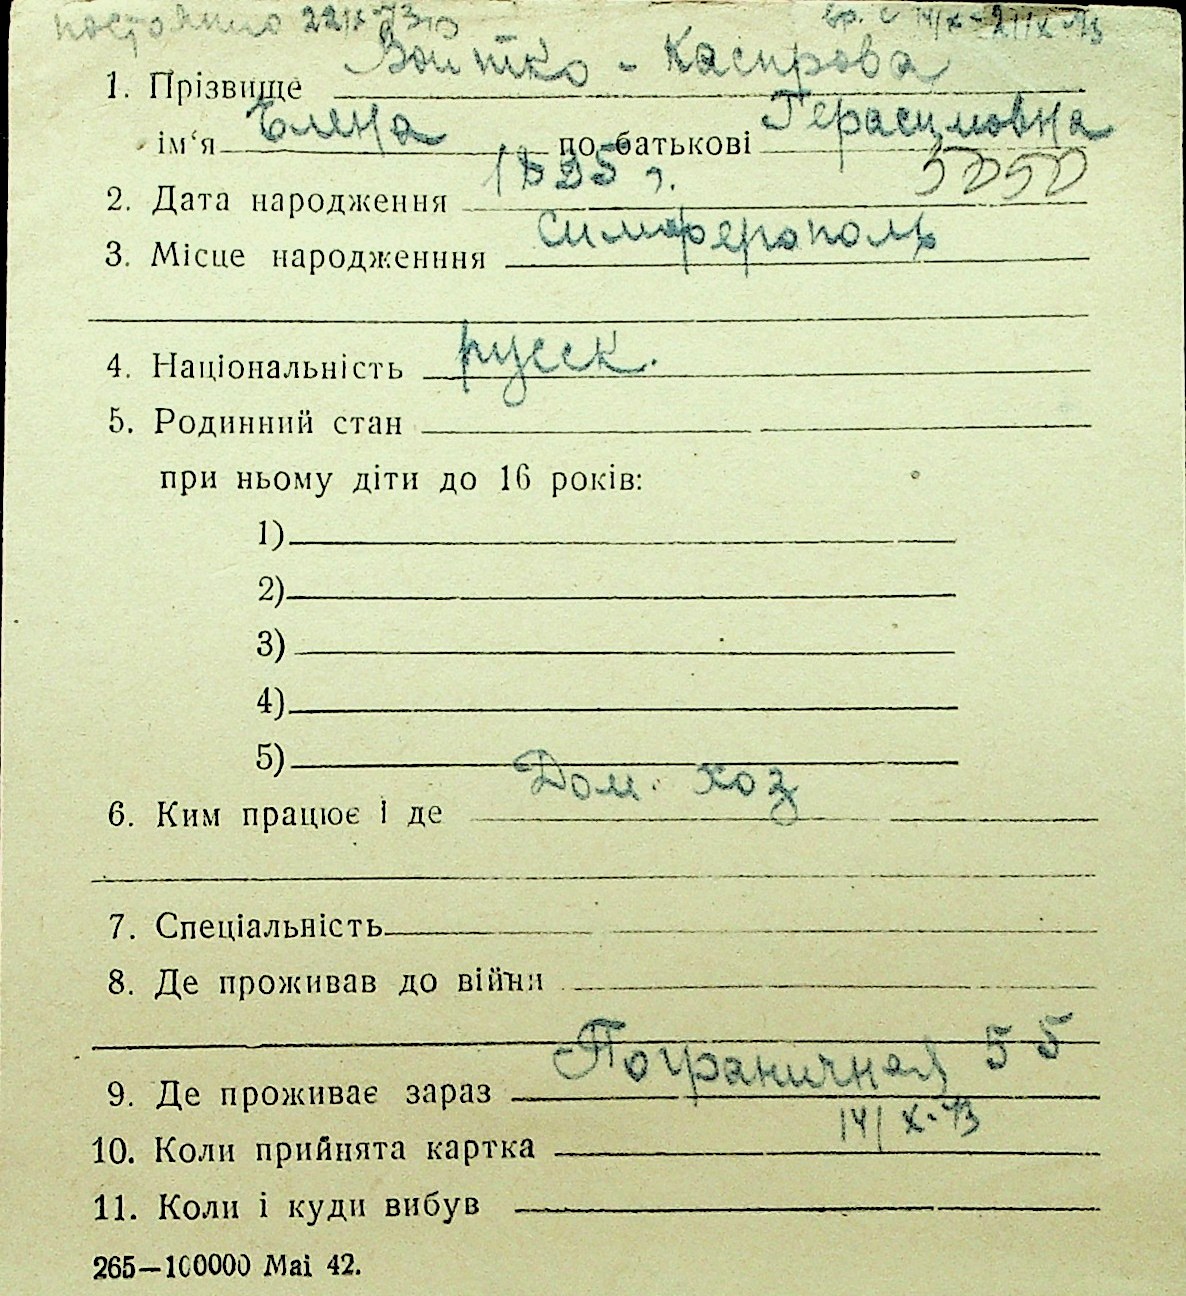 постоянно 22/X-43 г вр. с 14/X - 21/X-43
1. Прізвище Войтко - Касирова
ім‘я Елена по батькові Герасимовна
2. Дата народження 1895 г. 5050
3. Місце народженння Симферополь
4. Національність русск.
5. Родинний стан
при ньому діти до 16 років:
1)
2)
3)
4)
5)
6. Ким працює і де Дом. хоз
7. Спеціальність
8. Де проживав до війни
9. Де проживає зараз Пограничная 55
10. Коли прийнята картка 14/X-43
11. Коли і куди вибув
265—100000 Маі 42.